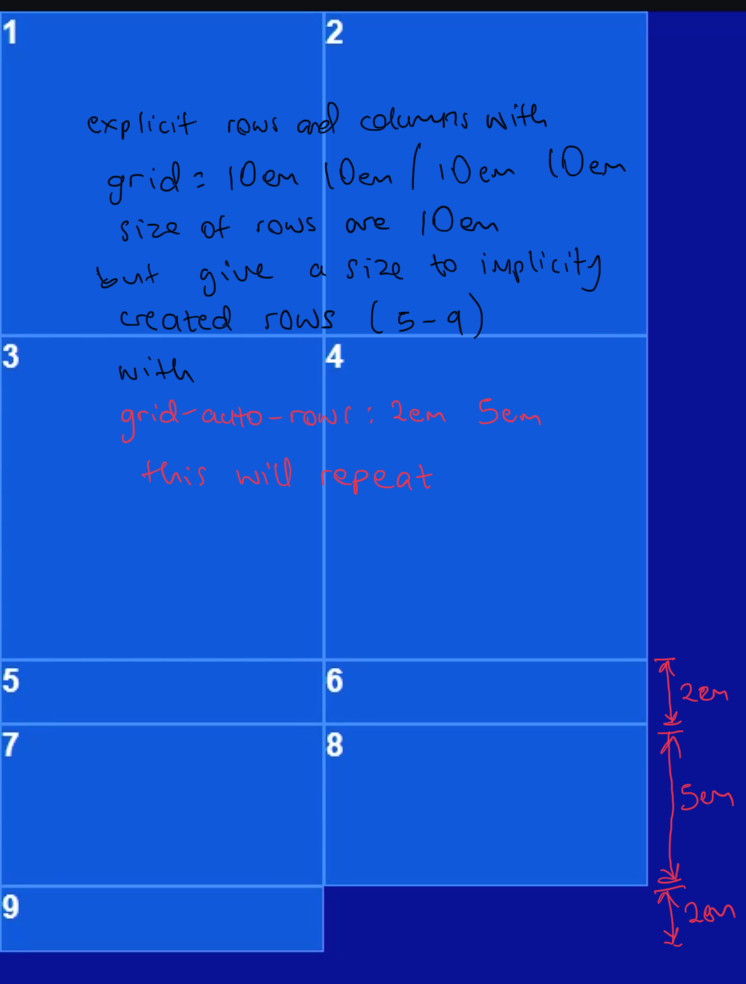 1 2
explicit rows and columns with
grid: 10em 10em / 10em 10em
size of rows are 10em
but give a size to implicity
created rows (5-9)
3 4
with
grid-auto-rows: 2em 5em
this will repeat
5 6 2em
7 8
5em
9 2em